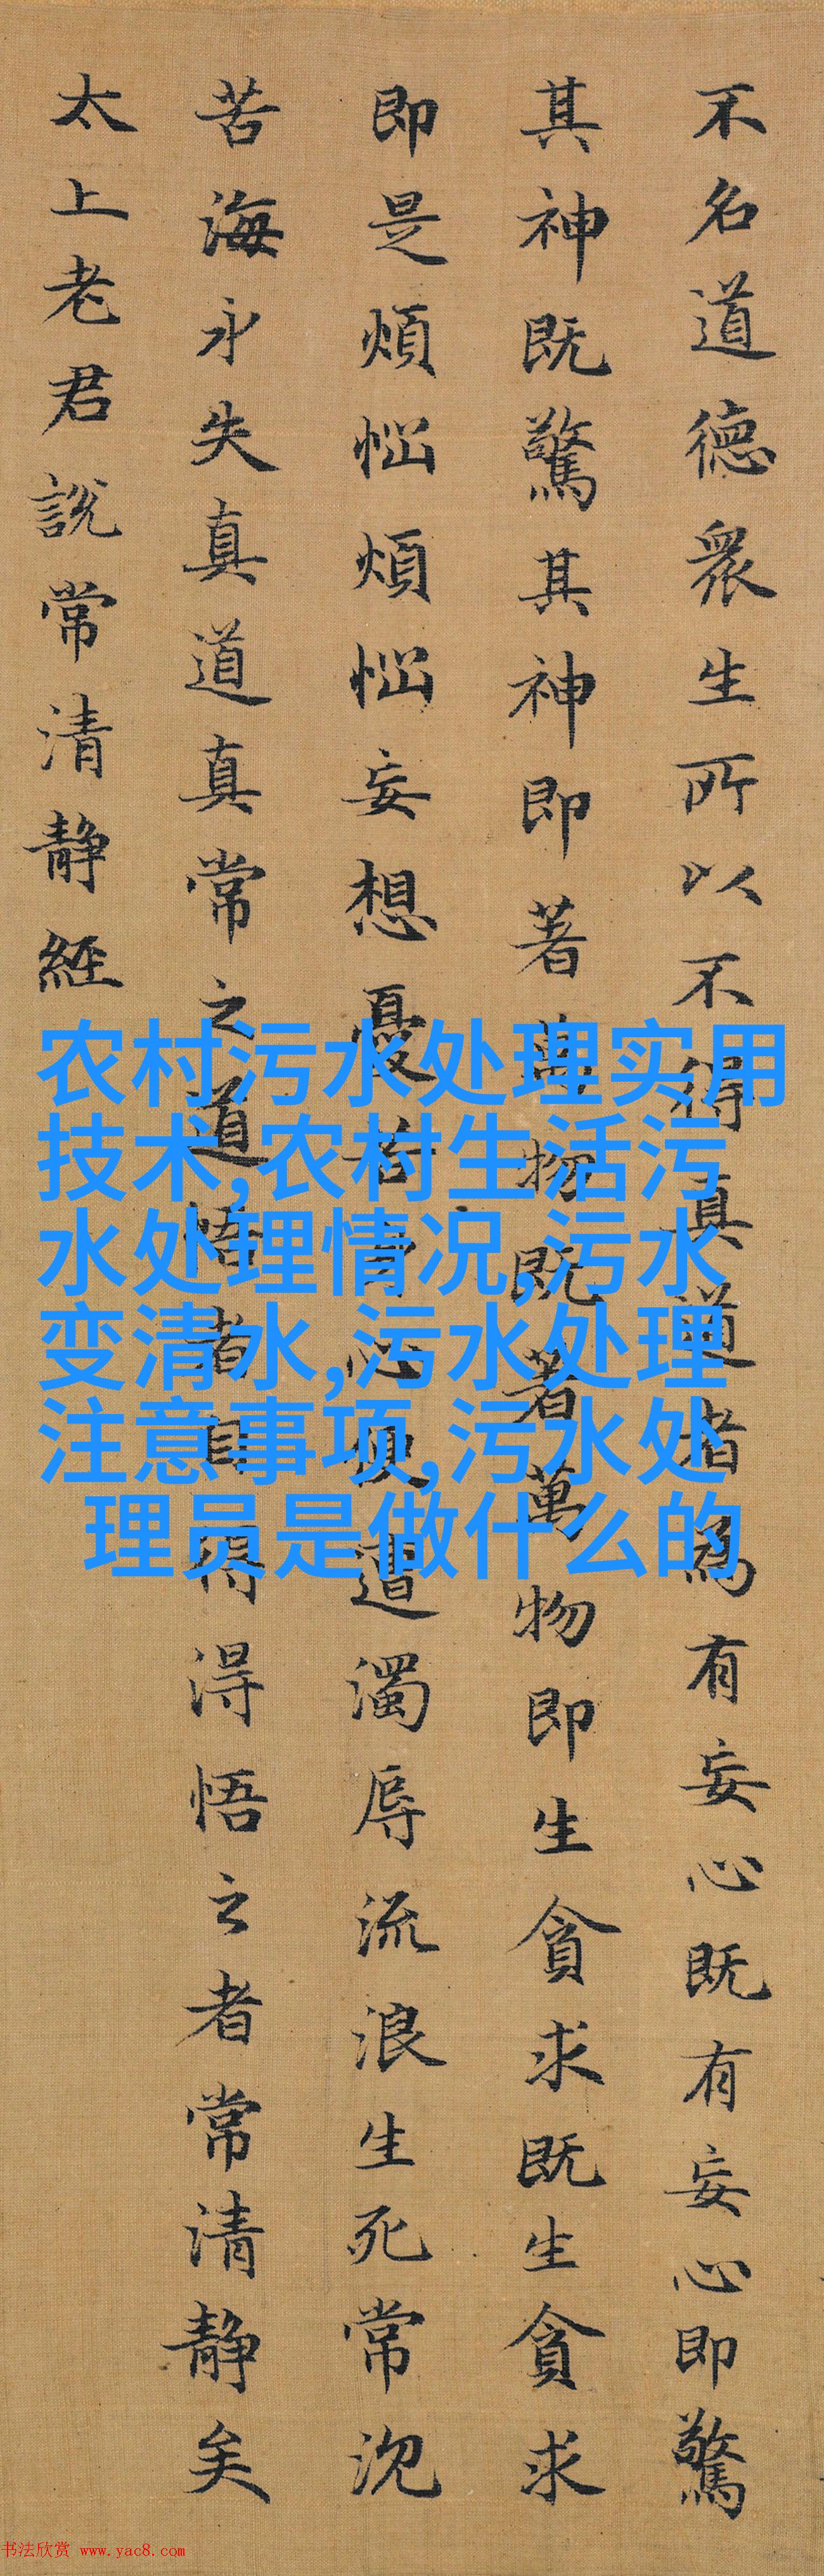 不名道德眾生所以不得真道者為有妄心既有妄心即驚
其神既驚其神即著萬物既著萬物即生貪求既生貪求
即是煩惱煩惱妄想憂苦身心便遭濁辱流浪生死常沉
苦海永失真道真常之道悟者自得得悟之者常清静矣
太上老君說常清静經
农村污水处理实用
技术,农村生活污
水处理情况,污水
变清水,污水处理
注意事项,污水处
理员是做什么的
书法欣赏 www.yac8.com